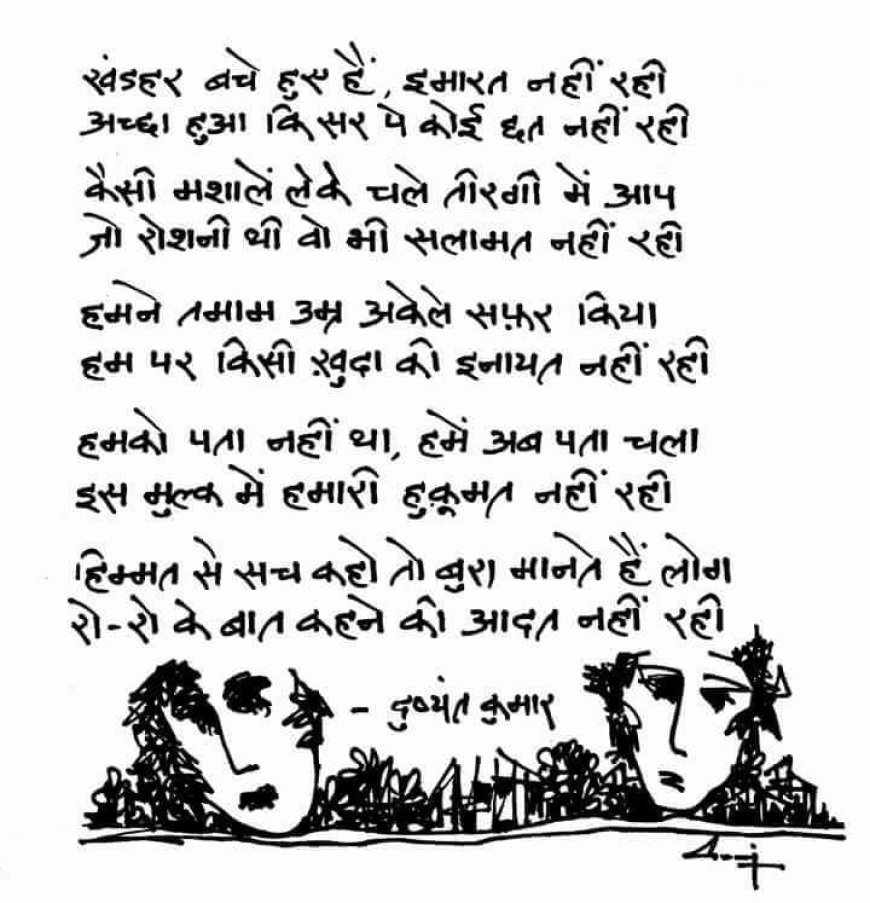 खंडहर बचे हुए हैं, इमारत नहीं रही
अच्छा हुआ कि सर पे कोई छत नहीं रही
कैसी मशालें लेके चले तीरगी में आप
जो रोशनी थी वो भी सलामत नहीं रही
हमने तमाम उम्र अकेले सफ़र किया
हम पर किसी ख़ुदा की इनायत नहीं रही
हमको पता नहीं था, हमें अब पता चला
इस मुल्क में हमारी हुक़ूमत नहीं रही
हिम्मत से सच कहो तो बुरा मानते हैं लोग
रो-रो के बात कहने की आदत नहीं रही
- दुष्यंत कुमार